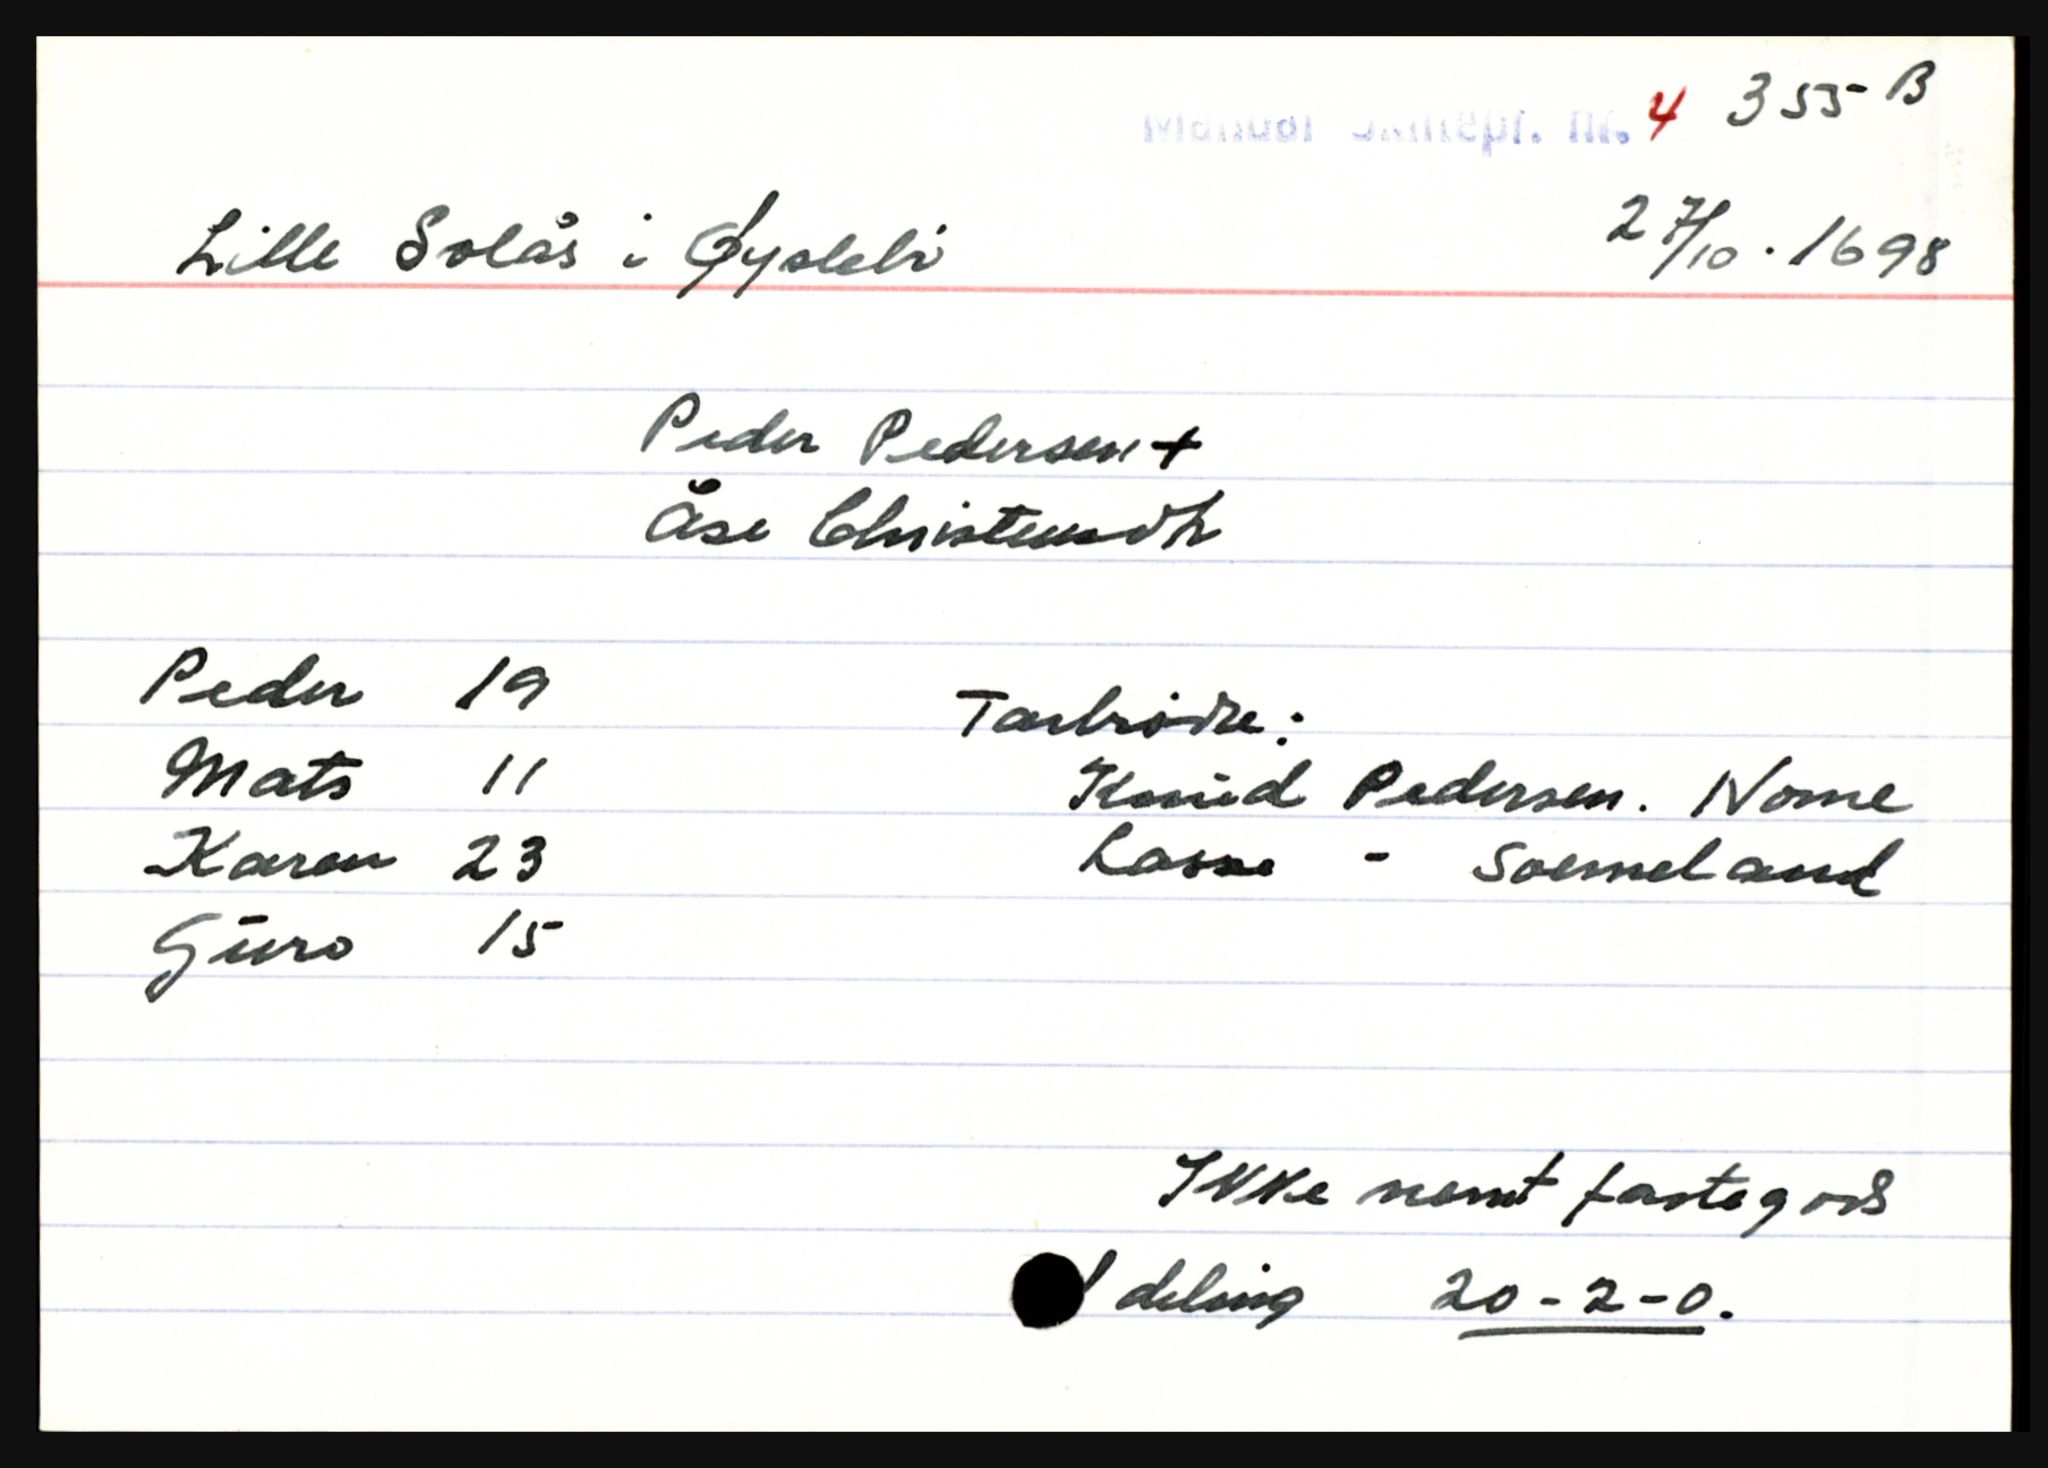 Mandal Skiftepr. nr. 4 355 B
Lille Solås i Øyslebø 27/10. 1698
Peder Pedersen +
Åse Christensdtr
Peder 19
Mats 11
Karen 23
Guro 15
Farbrødre:
Knud Pedersen. Nome
Lasse - Soemeland
Ikke nevnt fastegods
I deling 20-2-0.